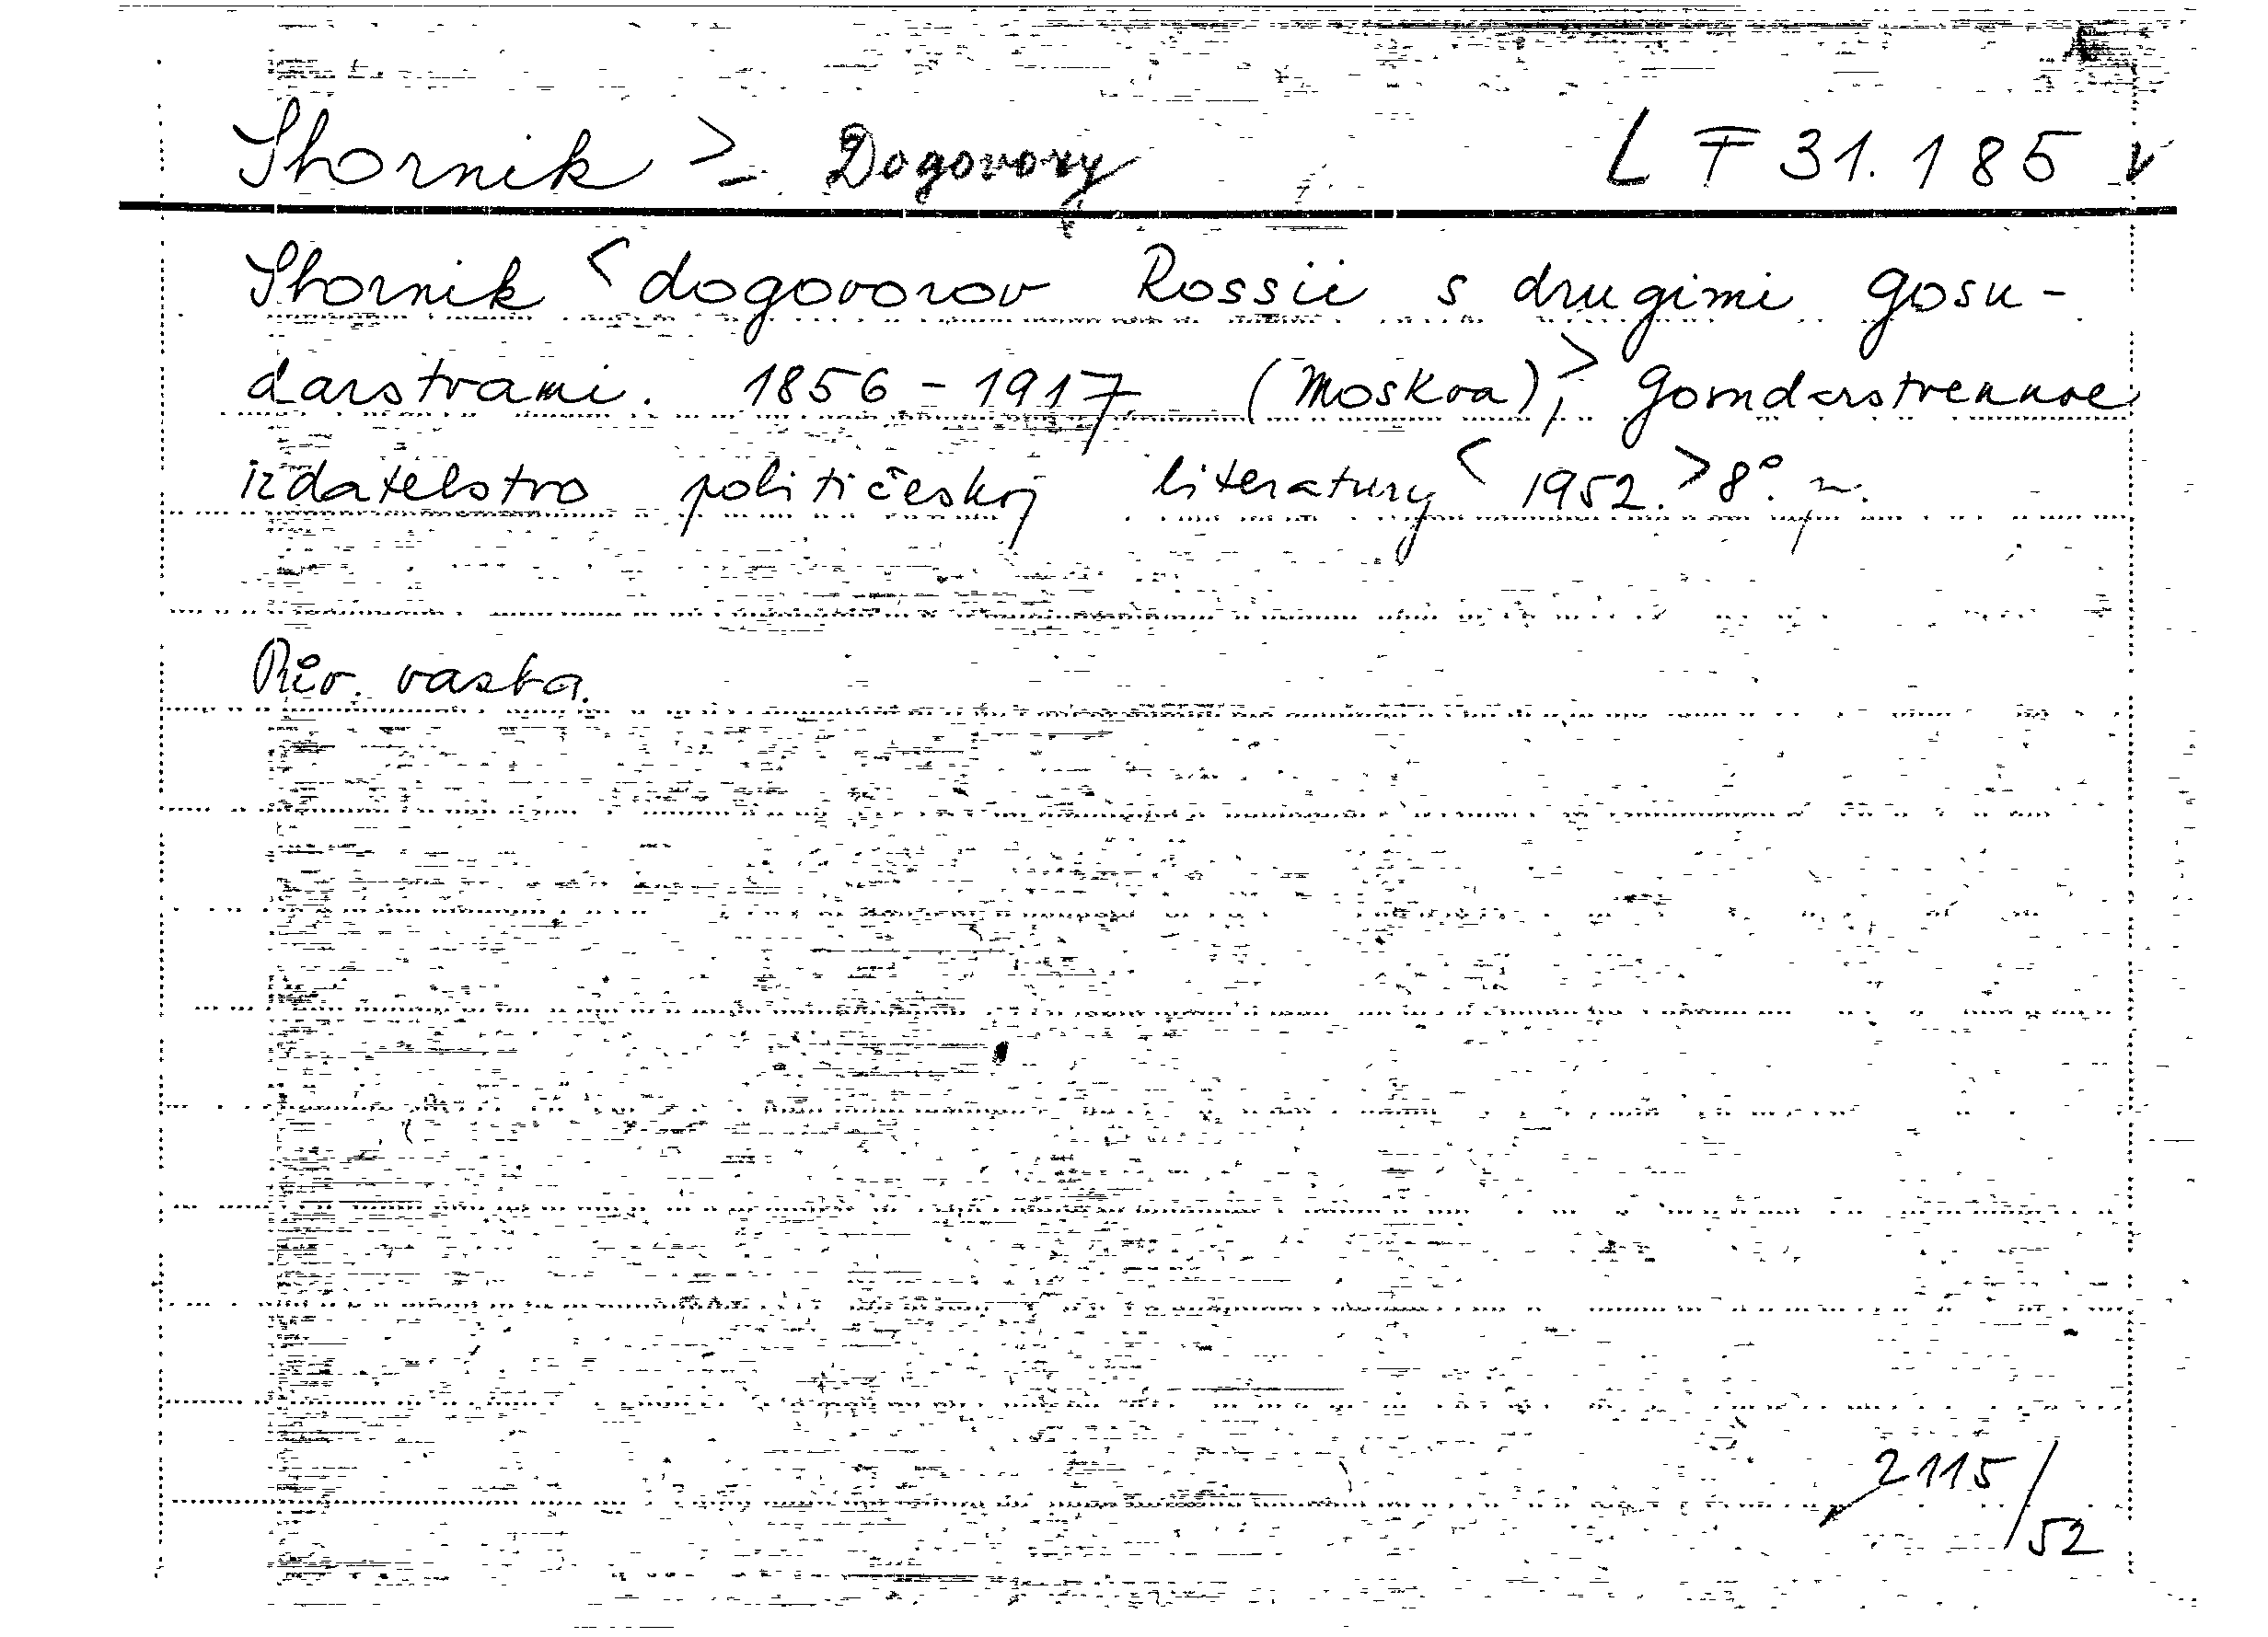 Sbornik > - Dogovory L F 31.185 v
Sbornik < dogovorov Rossii s drugimi gosu-
darstvami. 1856 - 1917 (Moskva), > Gosudarstvennoe
izdatelstvo političeskoj literatury < 1952. > 8°.
Pův. vazba.
2115/52